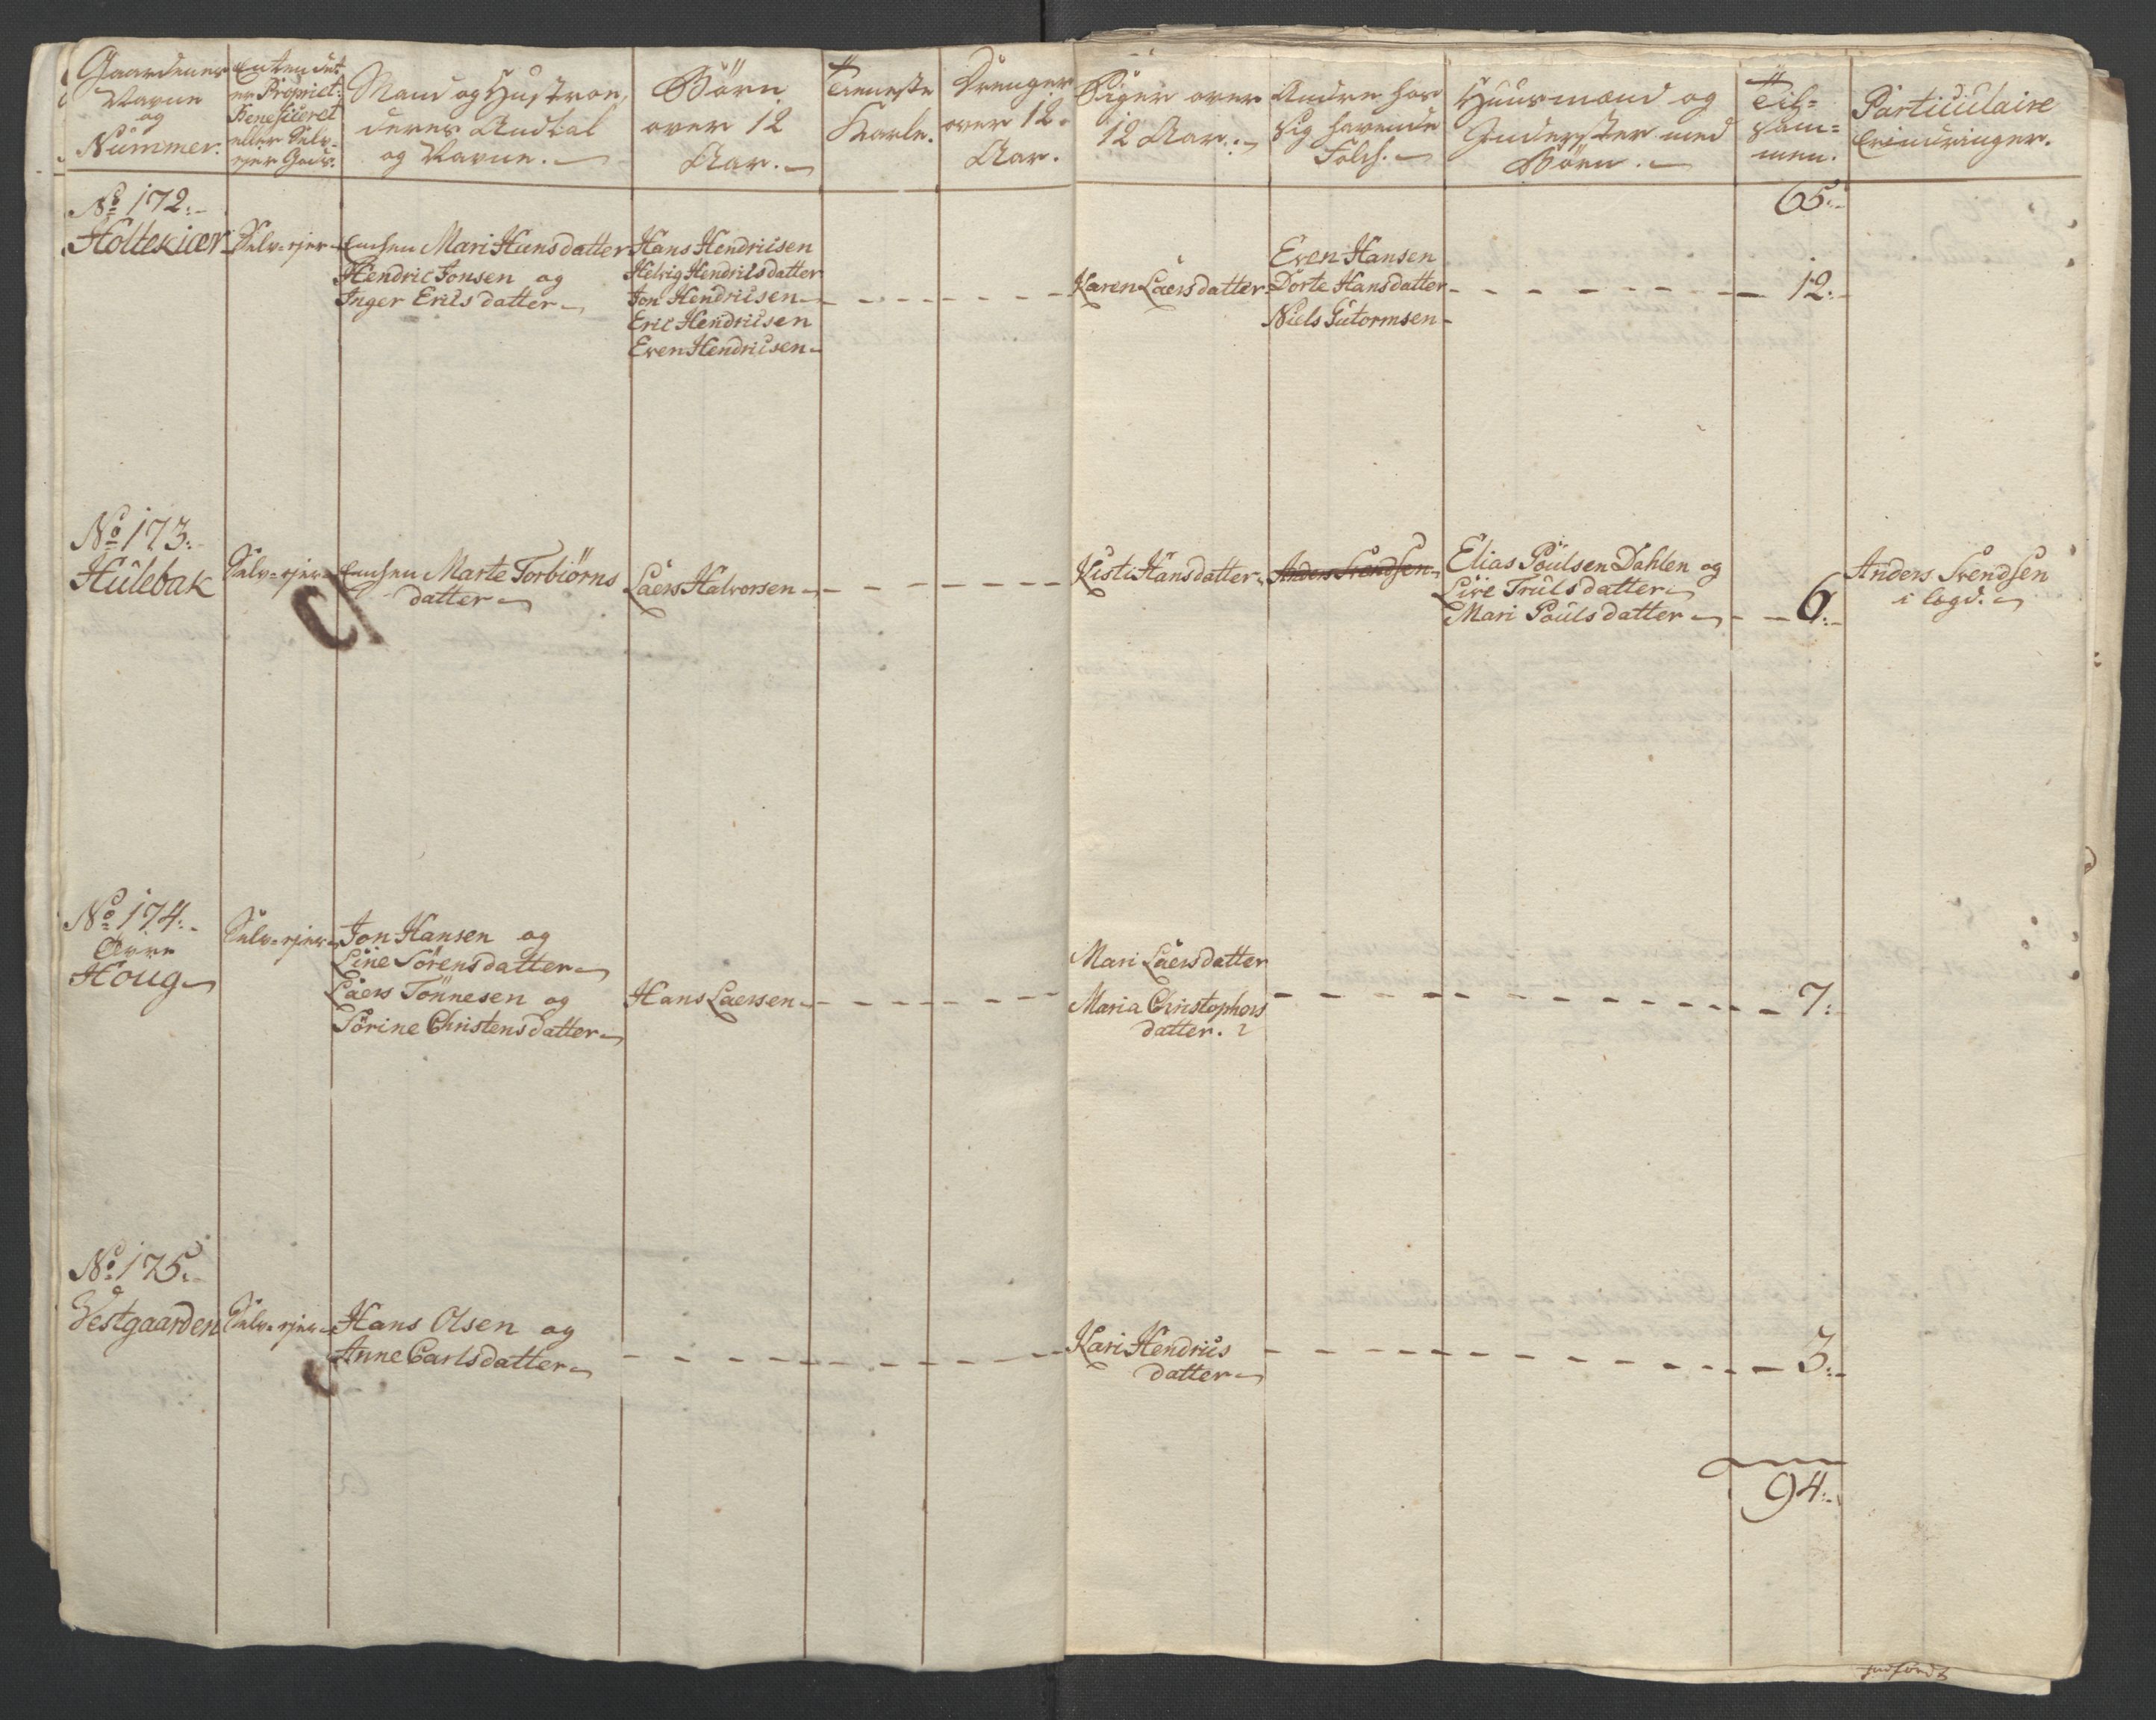 Gaardenes
Navne
og
Nummer.
Enten det
er Propriet:
Beneficeret
eller Selv-
ejer Gods.
Mand og Hustroe,
deres Andtal
og Navne.
Börn
over 12
Aar.
Tieneste
Karle.
Drenger
over 12
Aar.
Piger over
12 Aar.
Andre hos
sig havende
Folck.
Huusmænd og
Inderster med
Börn.
Til=
sam=
men.
Particulaire
Erindringer.
65:
No 172:
Holtekiær
Selv=ejer
Enken Mari Hansdatter
Hendric Jonsen og
Inger Erics datter
Hans Hendricsen
Helvig Hendricsdatter
Jon Hendricsen
Eric Hendricsen
Even Hendricsen
Karen Laersdatter
Even Hansen
Dorte Hansdatter
Niels Gutormsen
12:
No 173:
Hulebak
Selv=ejer
Enken Marte Torbiörns
datter
Laers Halvorsen
Kisti Hansdatter
Anders Svendsen
Elias Poulsen Dahlen og
Live Truls datter
Mari Pouls datter
6:
Anders Svendsen
i legd.
No 174:
Övre
Houg
Selv=ejer
Jon Hansen og
Line Sörens datter
Laers Tönnesen og
Sörine Christens datter
Hans Laersen
Mari Laersdatter
Maria Christophers
datter.
7:
No 175.
Vestgaarden
Selv=ejer
Hans Olsen og
Anne Carls datter
Kari Hendrics
datter
3:
94: